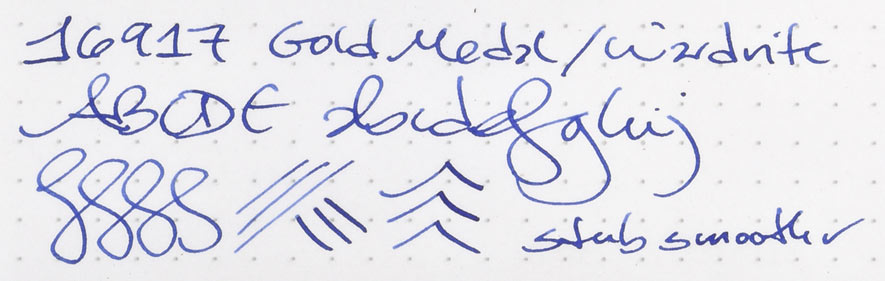 16917 Gold Medal/Wirdnite
ABCDE abcdefghij
stub smooth ✓